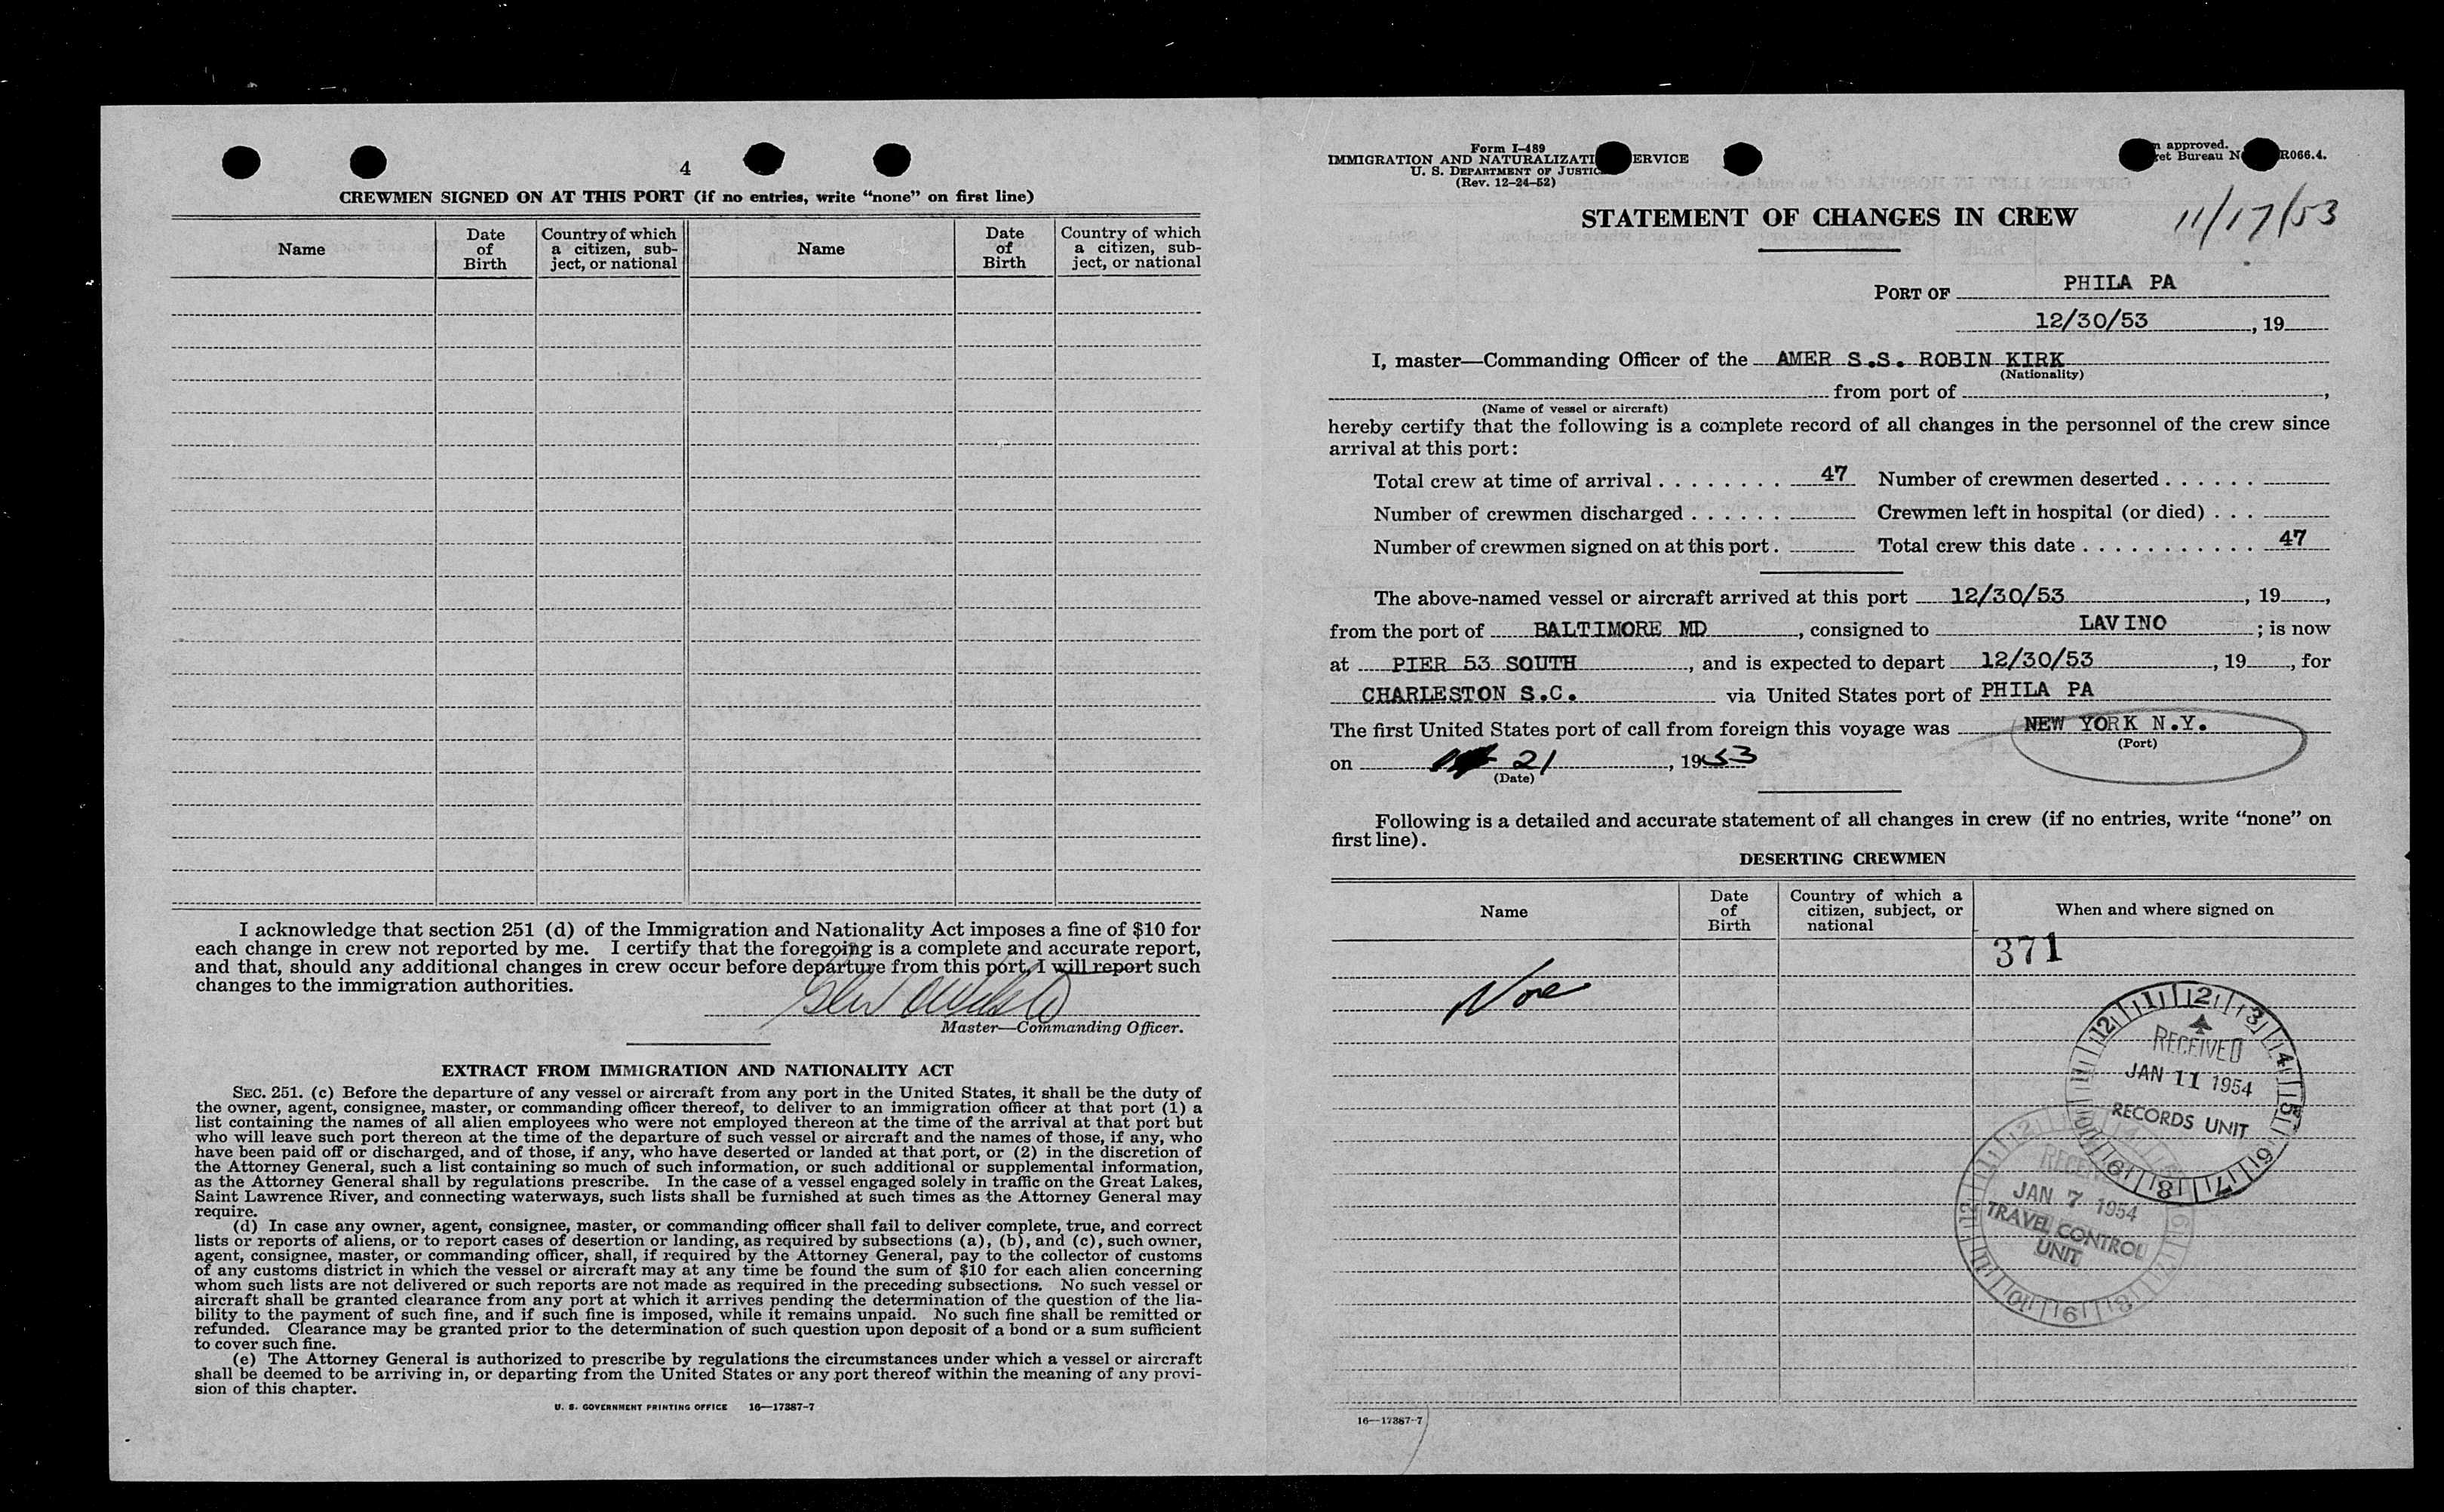 4
CREWMEN SIGNED ON AT THIS PORT (if no entries, write “none” on first line)
Name
Date of Birth
Country of which a citizen, subject, or national
Name
Date of Birth
Country of which a citizen, subject, or national
I acknowledge that section 251 (d) of the Immigration and Nationality Act imposes a fine of $10 for
each change in crew not reported by me. I certify that the foregoing is a complete and accurate report,
and that, should any additional changes in crew occur before departure from this port, I will report such
changes to the immigration authorities.
Master—Commanding Officer.
EXTRACT FROM IMMIGRATION AND NATIONALITY ACT
SEC. 251. (c) Before the departure of any vessel or aircraft from any port in the United States, it shall be the duty of
the owner, agent, consignee, master, or commanding officer thereof, to deliver to an immigration officer at that port (1) a
list containing the names of all alien employees who were not employed thereon at the time of the arrival at that port but
who will leave such port thereon at the time of the departure of such vessel or aircraft and the names of those, if any, who
have been paid off or discharged, and of those, if any, who have deserted or landed at that port, or (2) in the discretion of
the Attorney General, such a list containing so much of such information, or such additional or supplemental information,
as the Attorney General shall by regulations prescribe. In the case of a vessel engaged solely in traffic on the Great Lakes,
Saint Lawrence River, and connecting waterways, such lists shall be furnished at such times as the Attorney General may
require.
(d) In case any owner, agent, consignee, master, or commanding officer shall fail to deliver complete, true, and correct
lists or reports of aliens, or to report cases of desertion or landing, as required by subsections (a), (b), and (c), such owner,
agent, consignee, master, or commanding officer, shall, if required by the Attorney General, pay to the collector of customs
of any customs district in which the vessel or aircraft may at any time be found the sum of $10 for each alien concerning
whom such lists are not delivered or such reports are not made as required in the preceding subsections. No such vessel or
aircraft shall be granted clearance from any port at which it arrives pending the determination of the question of the lia-
bility to the payment of such fine, and if such fine is imposed, while it remains unpaid. No such fine shall be remitted or
refunded. Clearance may be granted prior to the determination of such question upon deposit of a bond or a sum sufficient
to cover such fine.
(e) The Attorney General is authorized to prescribe by regulations the circumstances under which a vessel or aircraft
shall be deemed to be arriving in, or departing from the United States or any port thereof within the meaning of any provi-
sion of this chapter.
U. S. GOVERNMENT PRINTING OFFICE 16—17387-7
Form I-489
IMMIGRATION AND NATURALIZATI ERVICE
U. S. DEPARTMENT OF JUSTIC
(Rev. 12-24-52)
approved.
et Bureau N R066.4.
STATEMENT OF CHANGES IN CREW
11/17/53
PORT OF PHILA PA
12/30/53, 19
I, master—Commanding Officer of the AMER S.S. ROBIN KIRK
(Nationality)
from port of ,
(Name of vessel or aircraft)
hereby certify that the following is a complete record of all changes in the personnel of the crew since
arrival at this port:
Total crew at time of arrival . . . . . . . . 47 Number of crewmen deserted . . . . . .
Number of crewmen discharged . . . . . . Crewmen left in hospital (or died) . . .
Number of crewmen signed on at this port . Total crew this date . . . . . . . . . . . 47
The above-named vessel or aircraft arrived at this port 12/30/53, 19 ,
from the port of BALTIMORE MD, consigned to LAVINO; is now
at PIER 53 SOUTH, and is expected to depart 12/30/53, 19 , for
CHARLESTON S.C. via United States port of PHILA PA
The first United States port of call from foreign this voyage was NEW YORK N.Y.
(Port)
on 21, 1953
(Date)
Following is a detailed and accurate statement of all changes in crew (if no entries, write “none” on
first line).
DESERTING CREWMEN
Name
Date of Birth
Country of which a citizen, subject, or national
When and where signed on
371
None
RECEIVED
JAN 11 1954
RECORDS UNIT
JAN 7 1954
TRAVEL CONTROL
UNIT
16—17387-7